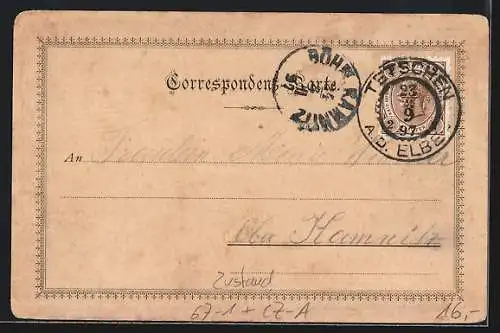 Correspondenz-Karte.
BÖHM. KAMNITZ
TETSCHEN
23
9
97
A.D. ELBE
An Fräulein Marie
Kamnitz
Zustand
67-1 + CZ-A
16,-